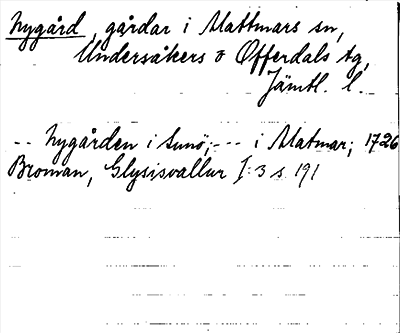 Nygård, gårdar i Mattmars sn,
Undersåkers o Offerdals tg,
Jämtl. l.
-- Nygården i Sunö, --- i Matmar; 1726
Broman, Glysisvallur I:3 s. 191